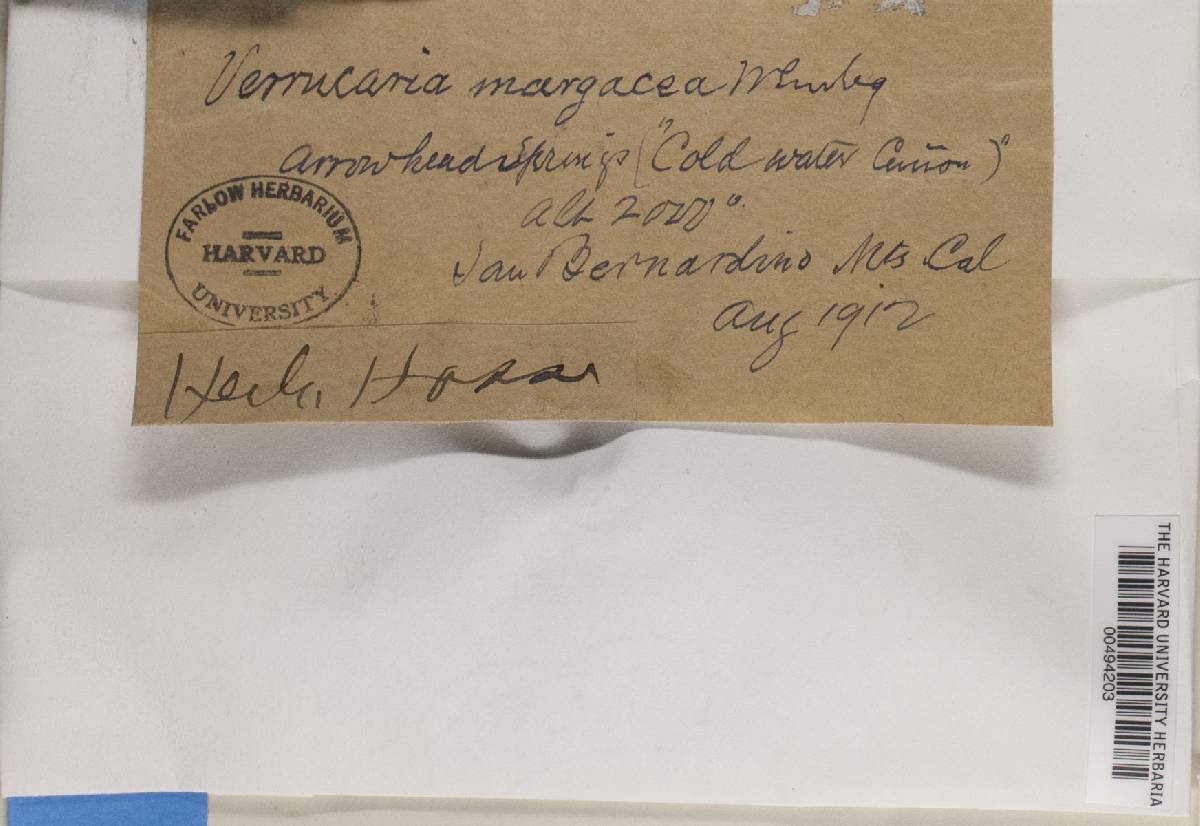 Verrucaria margacea Whnbg
Arrowhead Springs ("Cold water Cañon)"
alt 2000°.
San Bernardino Mts Cal
Aug 1912
FARLOW HERBARIUM
HARVARD
UNIVERSITY
Herb. Hasse
THE HARVARD UNIVERSITY HERBARIA
00494203